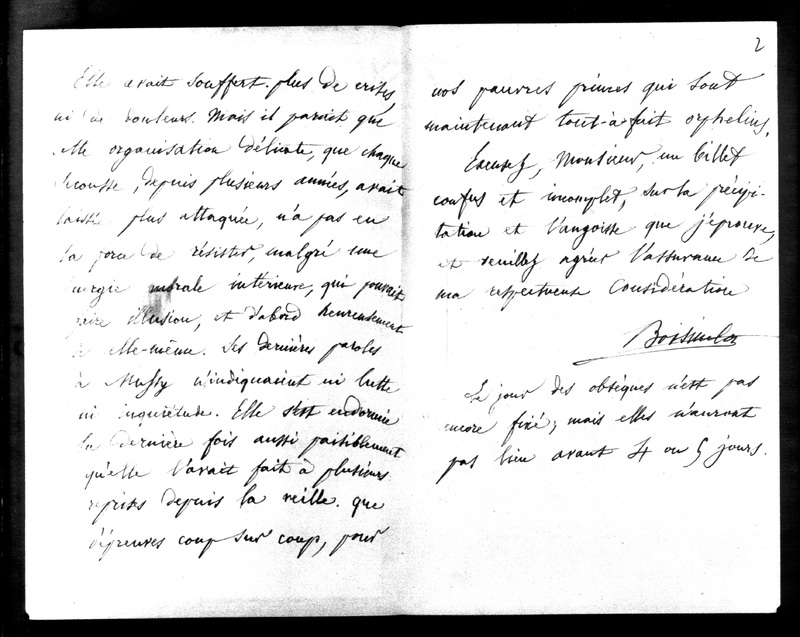 Elle avait souffert. plus de crises,
ni de douleurs. Mais il paraît que
cette organisation délicate, que chaque
secousse, depuis plusieurs années, avait
laissée plus attaquée, n'a pas eu
la force de résister, malgré une
énergie morale intérieure, qui pouvait
faire illusion, et d'abord heureusement
à elle-même. Ses dernières paroles
à Mussy n'indiquaient ni lutte
ni inquiétude. Elle s'est endormie
la dernière fois aussi paisiblement
qu'elle l'avait fait à plusieurs
reprises depuis la veille. que
d'épreuves coup sur coup, pour
2
nos pauvres princes qui sont
maintenant tout-à-fait orphelins.
Excusez, Monsieur, un billet
confus et incomplet, sur la précipi-
tation et l'angoisse que j'éprouve,
et veuillez agréer l'assurance de
ma respectueuse considération
Boismilon
Le jour des obsèques n'est pas
encore fixé; mais elles n'auront
pas lieu avant 4 ou 5 jours.